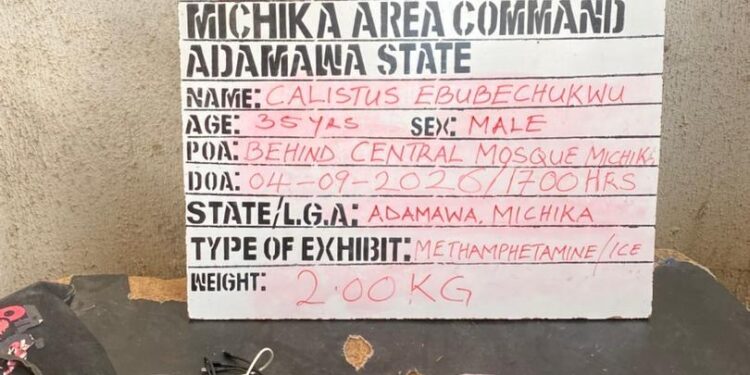 MICHIKA AREA COMMAND
ADAMAWA STATE
NAME: CALISTUS EBUBECHUKWU
AGE: 35 YRS SEX: MALE
POA: BEHIND CENTRAL MOSQUE MICHIKA
DOA: 04-09-2026/1700HRS
STATE/L.G.A: ADAMAWA, MICHIKA
TYPE OF EXHIBIT: METHAMPHETAMINE/ICE
WEIGHT: 2.00KG